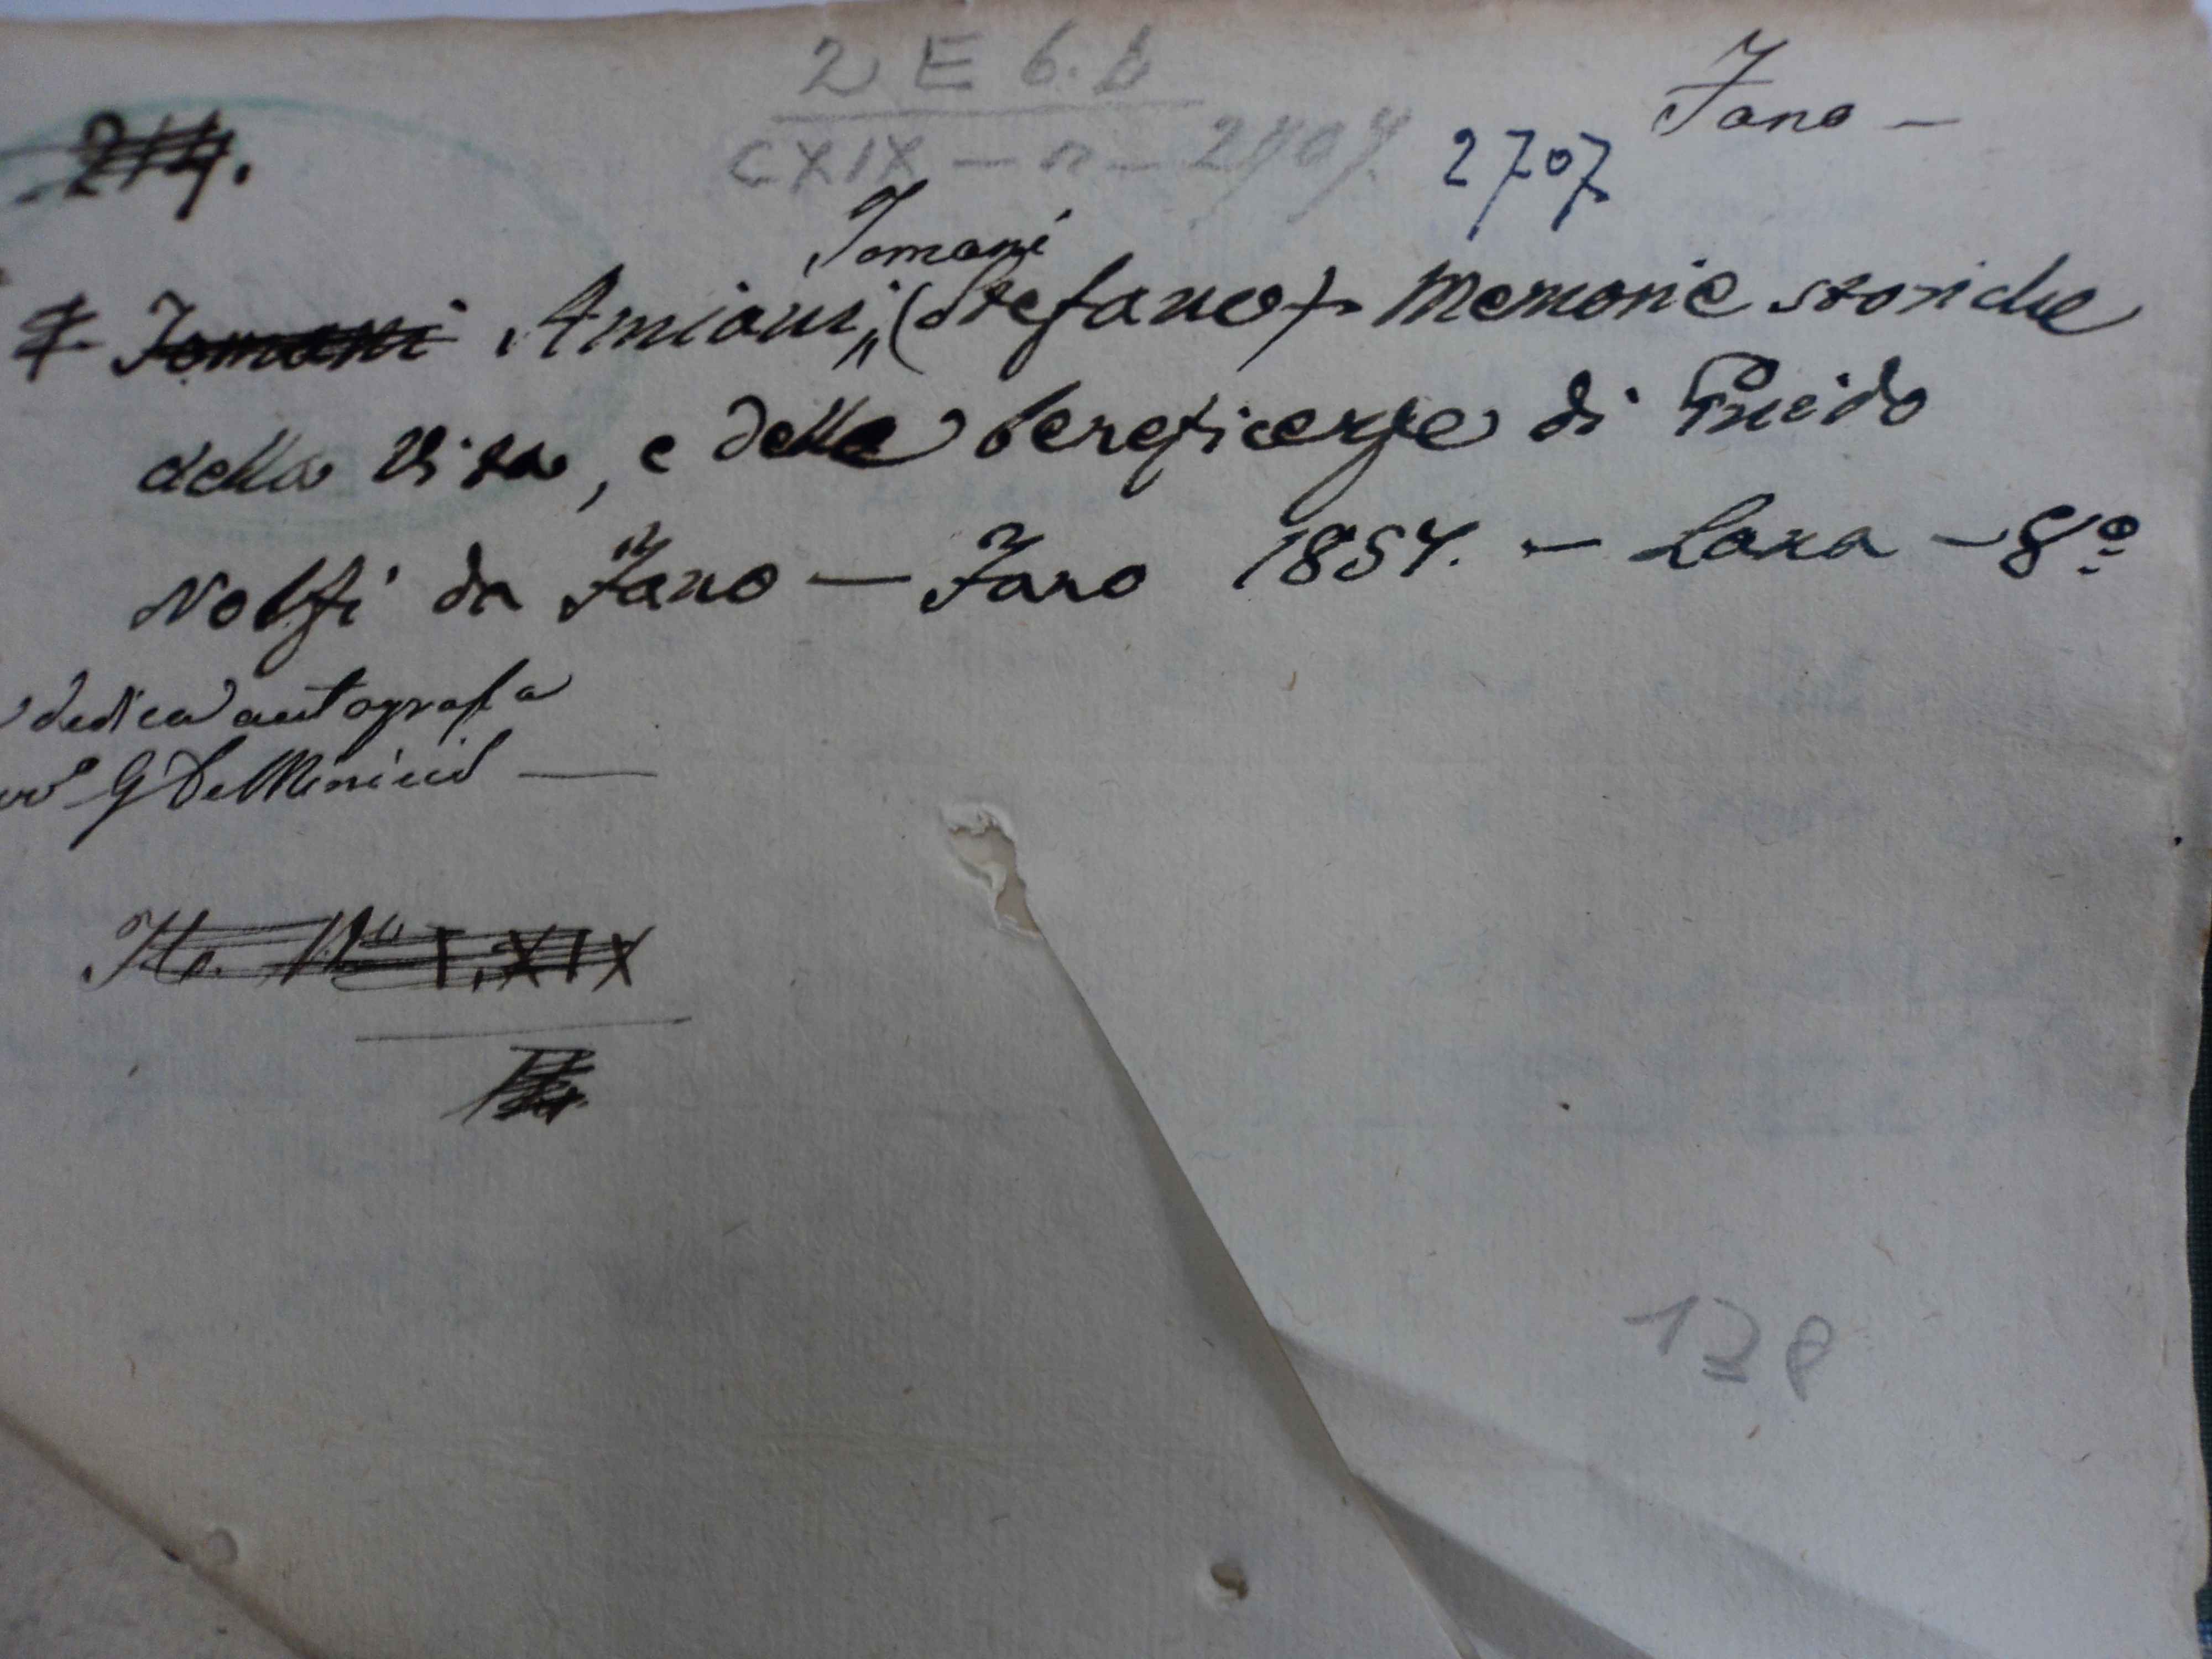 2 E 6. b
Fano —
CXIX — n — 2707.
2707
214.
Tomani
Tomani Amiani, (Stefano) - Memorie storiche
della Vita, e delle beneficenze di Guido
Nolfi da Fano — Fano 1857. — Lana — 8º
dedica autografa
G De Minicis —
LXIX
138